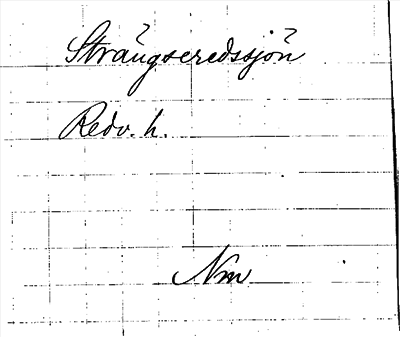 Strängseredssjön
Redv. h.
Nm